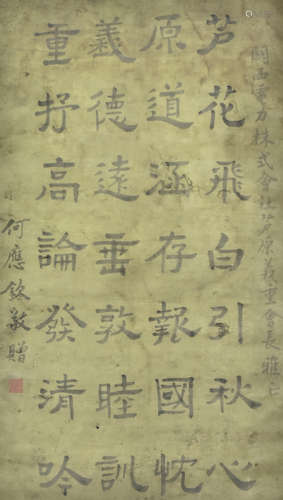 關西電力株式會社芦原義重會長雅正
芦花飛白引秋心
原道涵存報國忱
義德遠垂敦睦訓
重抒高論發清吟
何應欽敬贈